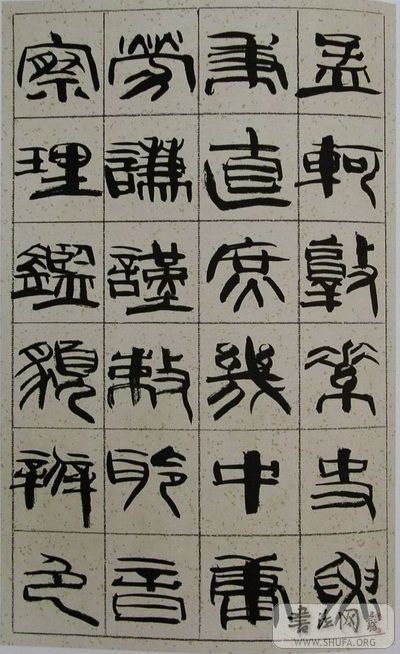 孟軻敦素史魚
秉直庶幾中庸
勞謙謹敕聆音
察理鑑貌辨色
書法网
WWW.SHUFA.ORG